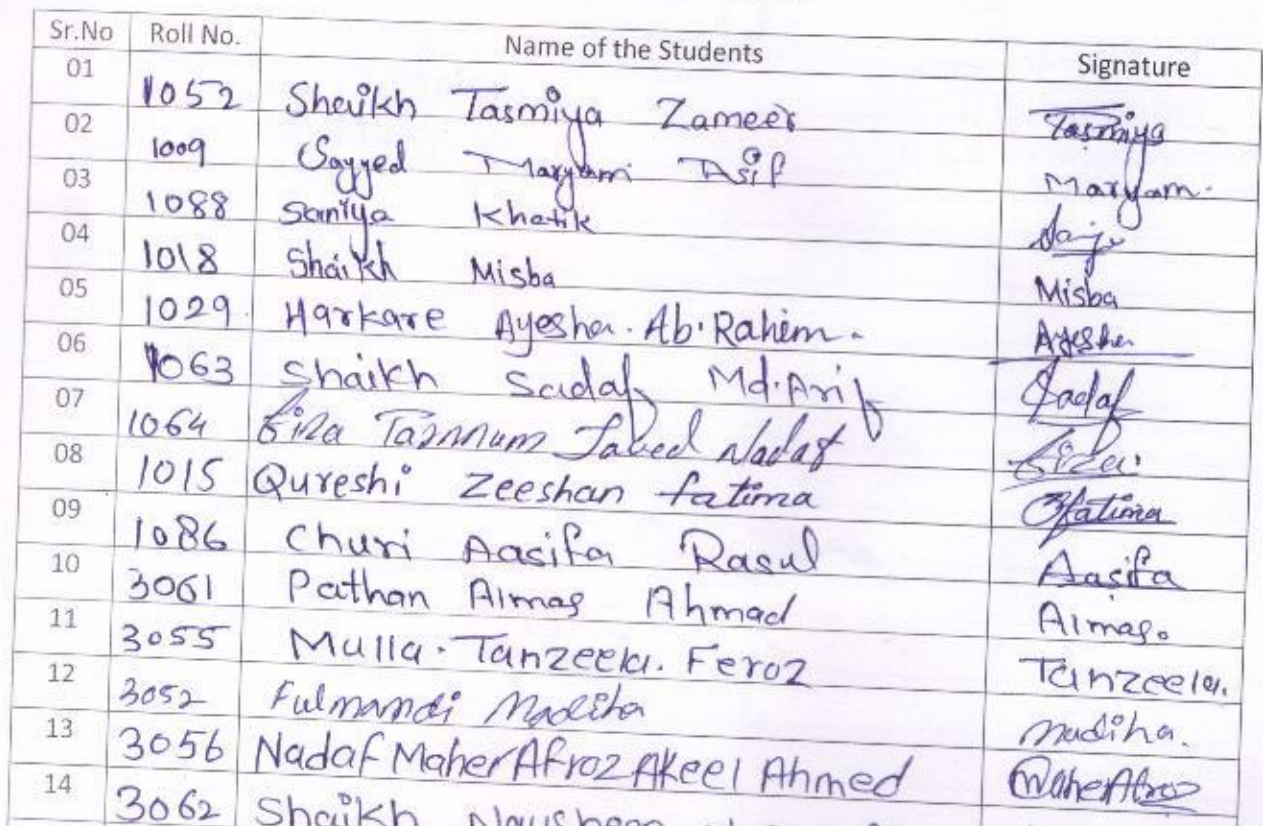 Sr.No Roll No. Name of the Students Signature
01 1052 Shaikh Tasmiya Zameer Tasmiya
02 1009 Sayyed Maryam Asif Maryam.
03 1088 Saniya Khatik
04 1018 Shaikh Misba Misba
05 1029. Harkare Ayesha. Ab. Rahim. Ayesha
06 1063 Shaikh Sadaf Md. Arif Sadaf
07 1064 Fiza Tarnnum Javed Nadaf Fiza.
08 1015 Qureshi Zeeshan fatima Zfatima
09 1086 Churi Aasifa Rasul Aasifa
10 3061 Pathan Almas Ahmad Almas.
11 3055 Mulla. Tanzeela. Feroz Tanzeela.
12 3052 Fulmamdi Madiha madiha.
13 3056 Nadaf Maher Afroz Akeel Ahmed MaherAfroz
14 3062 Shaikh Nausheen